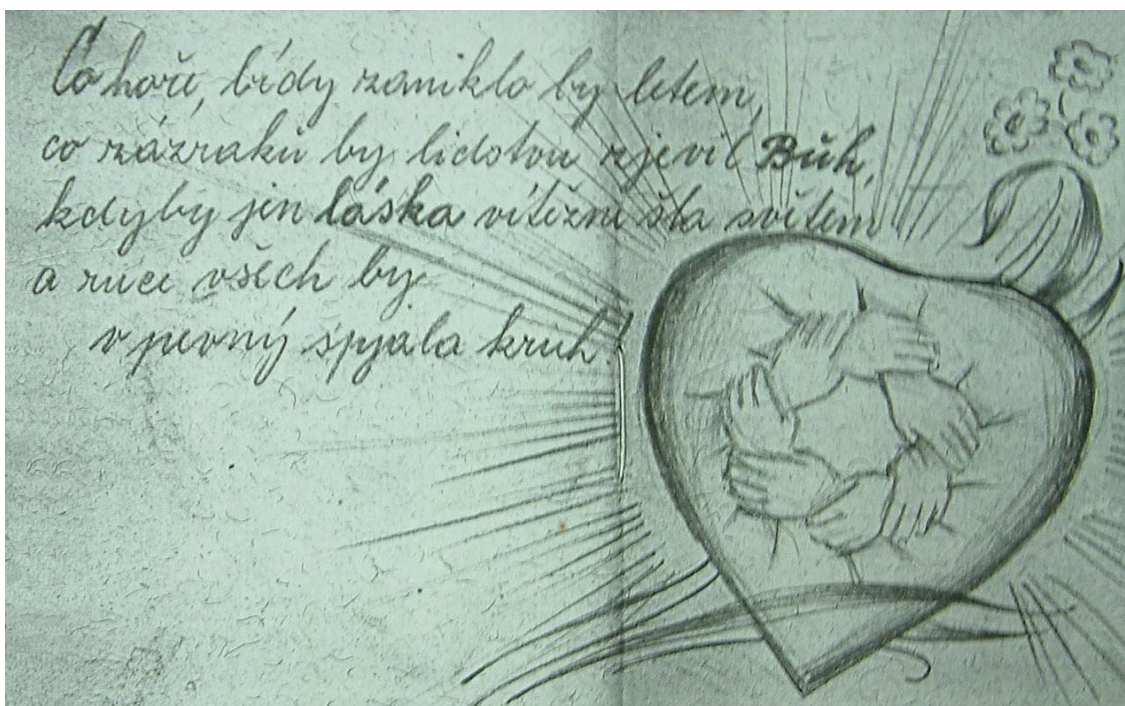 Co hoře, bídy zaniklo by letem,
co zázraků by lidstvu zjevil Bůh,
kdyby jen láska vítězně šla světem
a ruce všech by
v pevný spjala kruh.